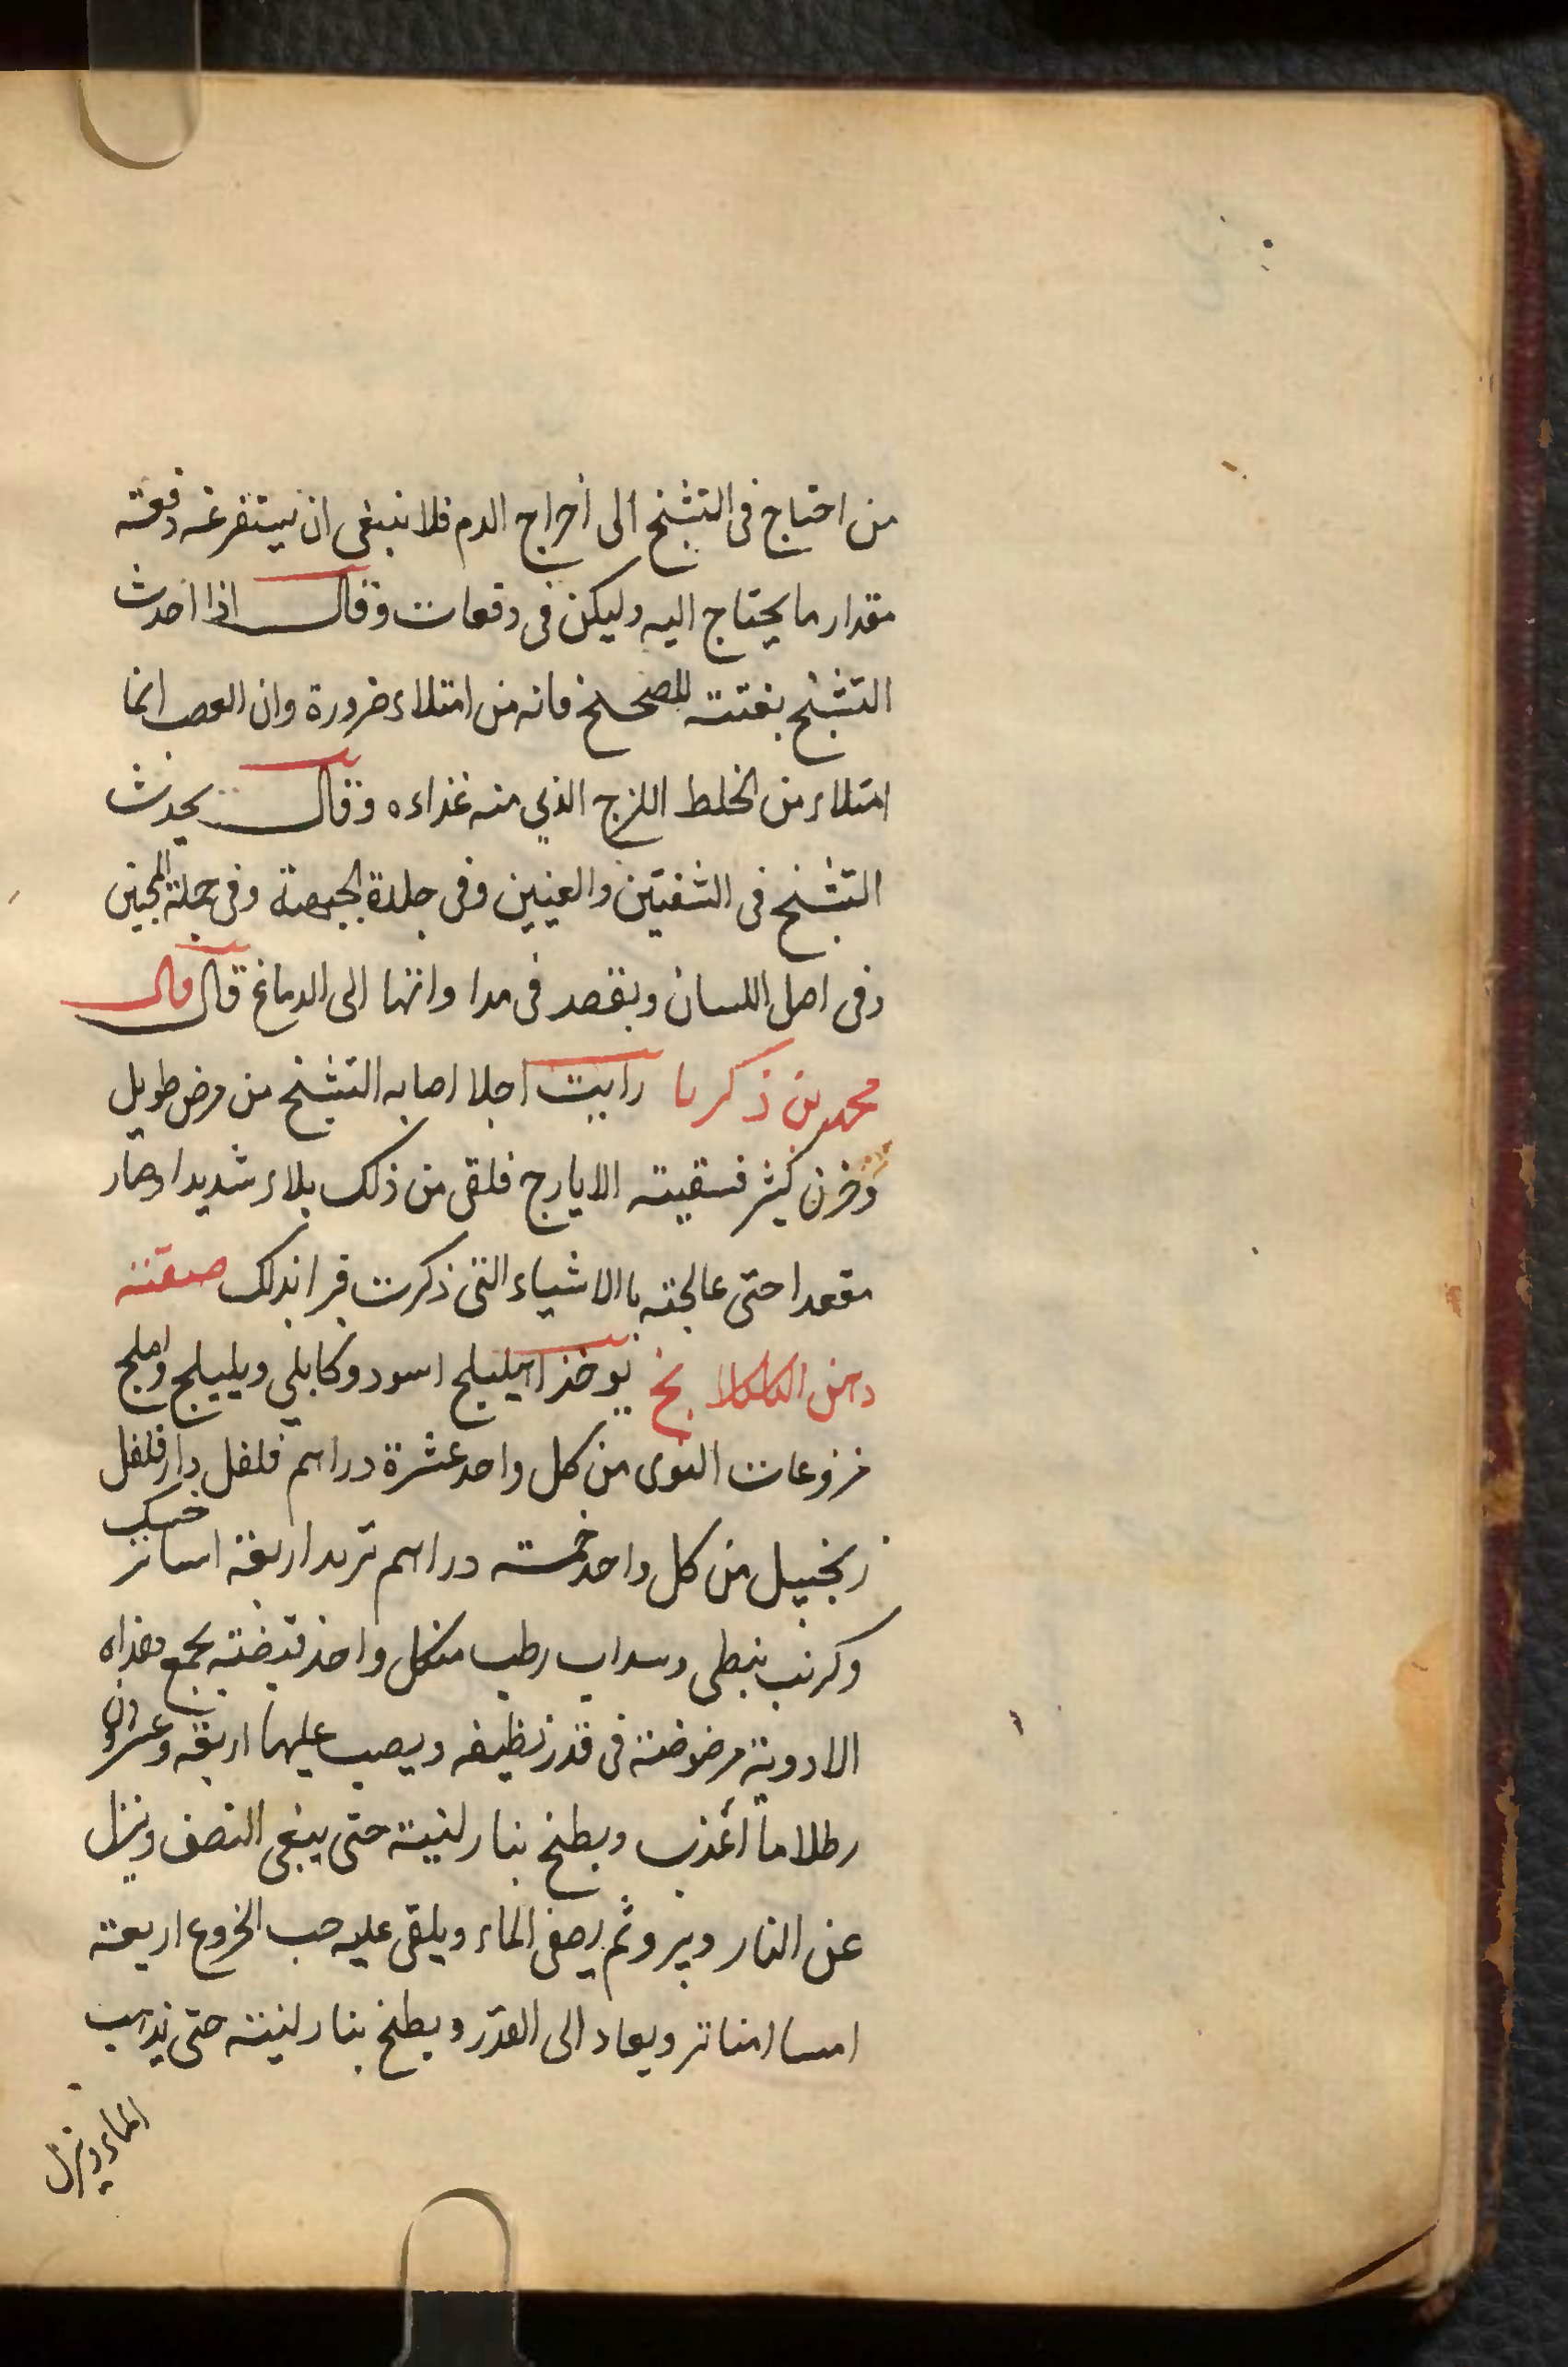 من احتاج فى التشنج الى أخراج الدم فلا ينبغى ان يستفرغه دفعته
مقدار ما يحتاج اليه وليكن فى دفعات وقال اذا احدث
التشنج بغتته للصحيح فانه من امتلاء ضرورة وان العصب انما
امتلاء من الخلط اللزج الذى منه غذاءه وقال يحدث
التشنج فى الشفتين والعينين وفى جلدة الجبهة وفى جملة اللحيين
وفى اصل اللسان ويقصد فى مدا واتها الى الدماغ قال قال
محمد بن زكريا رايت اجلا اصابه التشنج من مرض طويل
وحزن كثير فسقيته الايارج فلقى من ذلك بلاء شديدا وصار
مقعدا حتى عالجته باالاشياء التى ذكرت فبرا بذلك صفته
دهن الكلكلا نج يوخذ اهليلج اسود وكابلى وبليلج واملج
منزوعات النوى من كل واحد عشرة دراهم فلفل دارفلفل
زنجبيل من كل واحد خمسته دراهم تربد اربعة اساتر حسك
وكرنب نبطى وسداب رطب منكل واحد قبضته يجمع هذه
الادوية مرضوضته فى قدر نظيفه ويصب عليها اربعة وعشرون
رطلا ماأ عذب ويطبخ بنار لنيته حتى يبقى النصف وينزل
عن النار ويبر وثم يصفى الماء ويلقى عليه حب الخروع اربعته
امسا امناتر ويعاد الى القدر ويطبخ بنار لنيته حتى يذهب
الماء وينزل